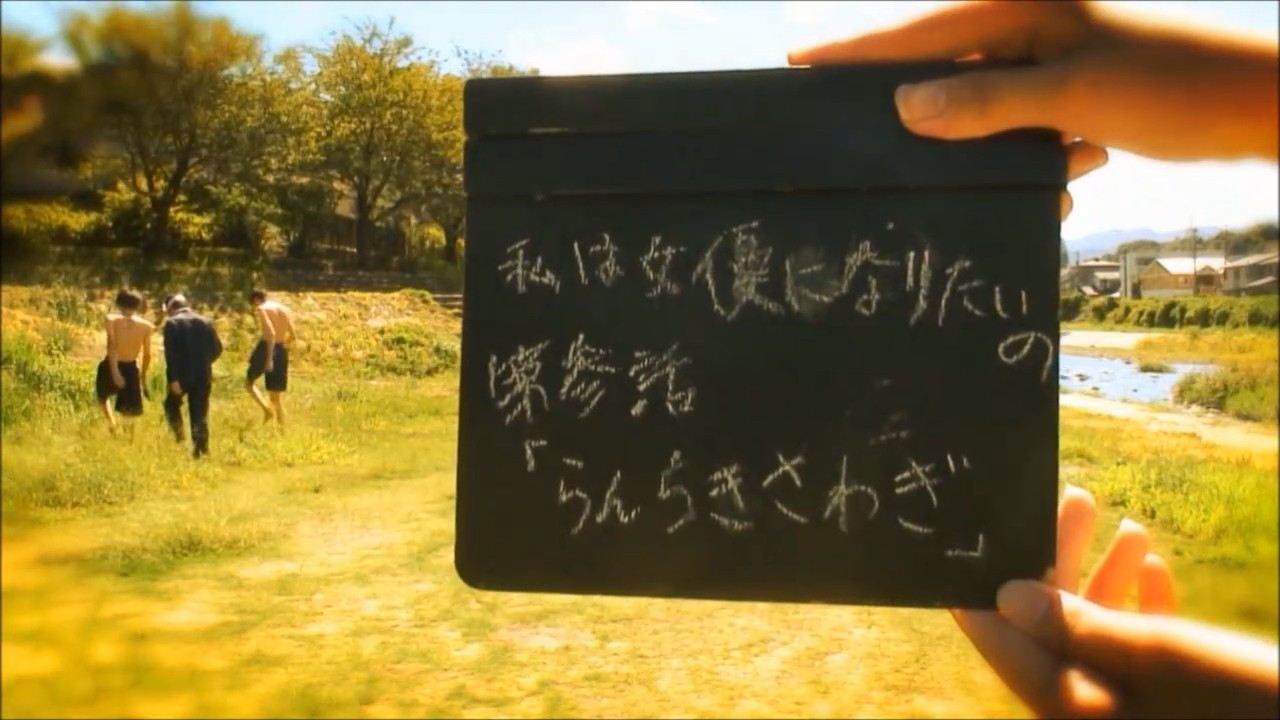 私は女優になりたい
の
第参話
「らんちきさわぎ」